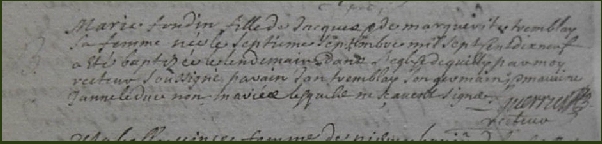 Marie fondin fille de Jacques et de marguerite tremblay
sa femme née le septieme septembre mil sept cent dix neuf
a été baptizée le lendemain dans leglise de quilly par moy
recteur soussigné parain Jan tremblay son germain et maraine
Janne leduc non mariée lesquels ne scavent signer
recteur
femme de